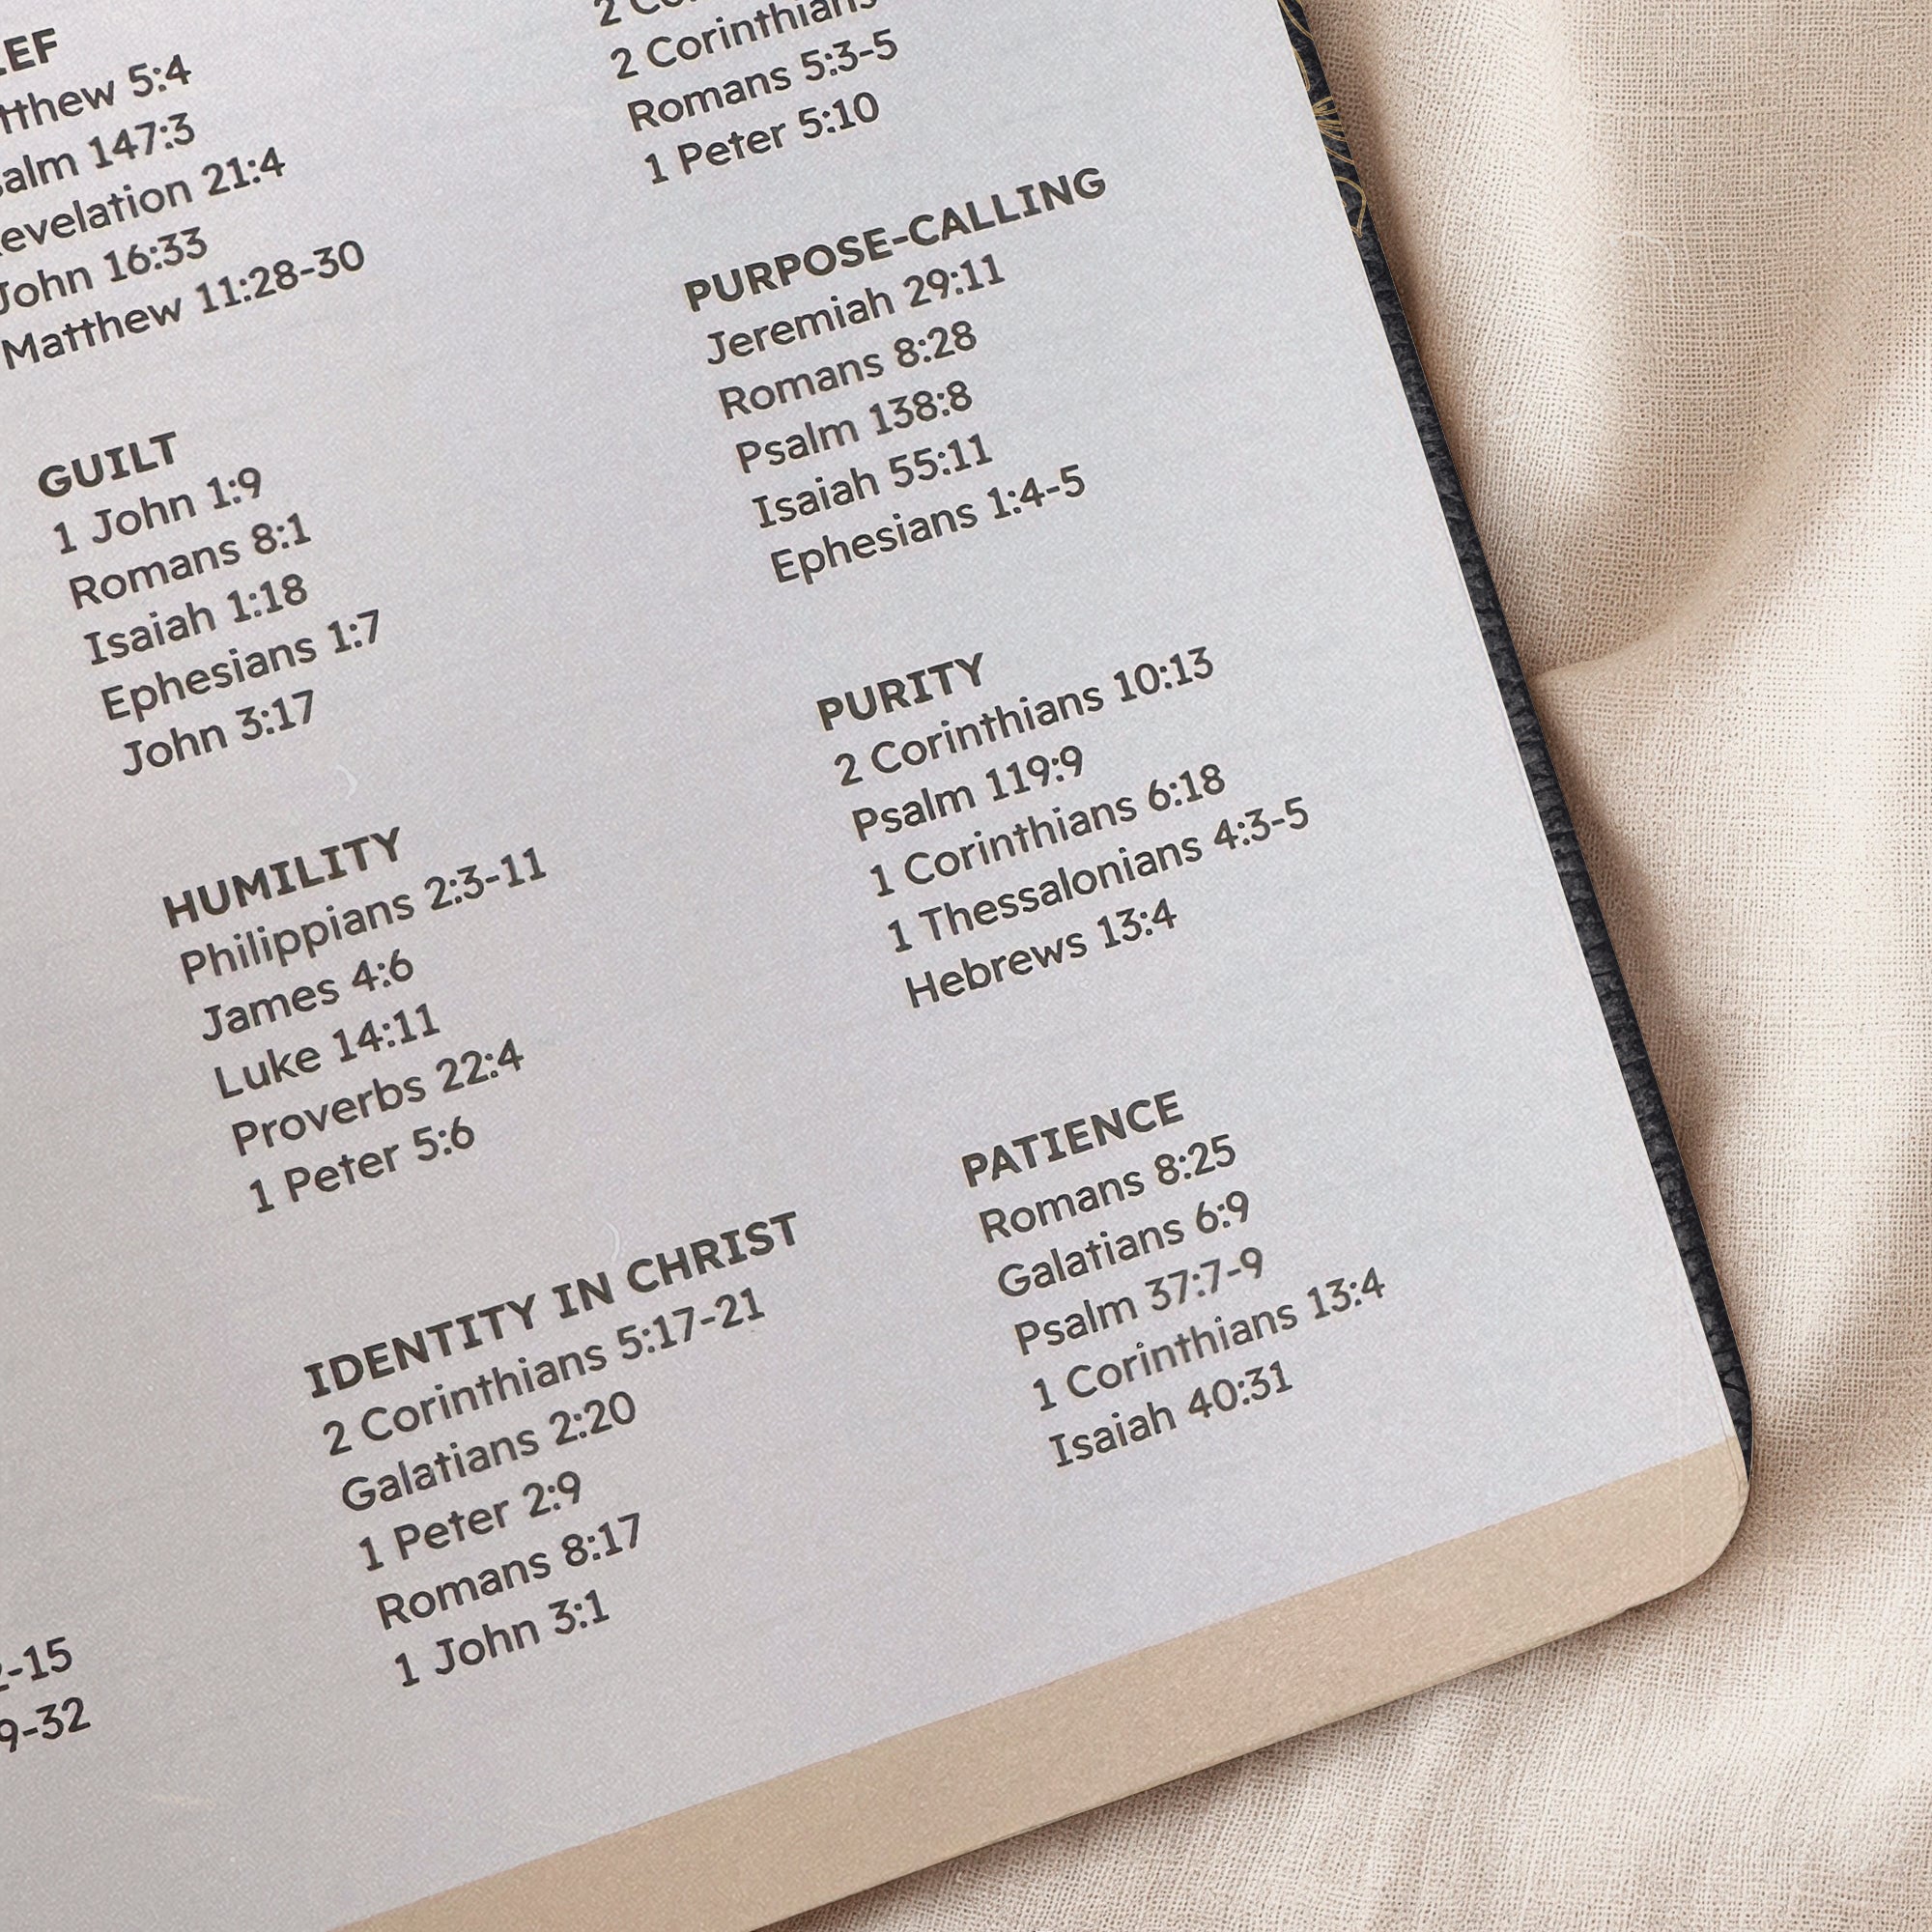 Matthew 11:28-30
John 16:33
21:4
147:3
5:4
GUILT
1 John 1:9
Romans 8:1
Isaiah 1:18
Ephesians 1:7
John 3:17
HUMILITY
Philippians 2:3-11
James 4:6
Luke 14:11
Proverbs 22:4
1 Peter 5:6
IDENTITY IN CHRIST
2 Corinthians 5:17-21
Galatians 2:20
1 Peter 2:9
Romans 8:17
1 John 3:1
-15
9-32
2 Corinthians
Romans 5:3-5
1 Peter 5:10
PURPOSE-CALLING
Jeremiah 29:11
Romans 8:28
Psalm 138:8
Isaiah 55:11
Ephesians 1:4-5
PURITY
2 Corinthians 10:13
Psalm 119:9
1 Corinthians 6:18
1 Thessalonians 4:3-5
Hebrews 13:4
PATIENCE
Romans 8:25
Galatians 6:9
Psalm 37:7-9
1 Corinthians 13:4
Isaiah 40:31